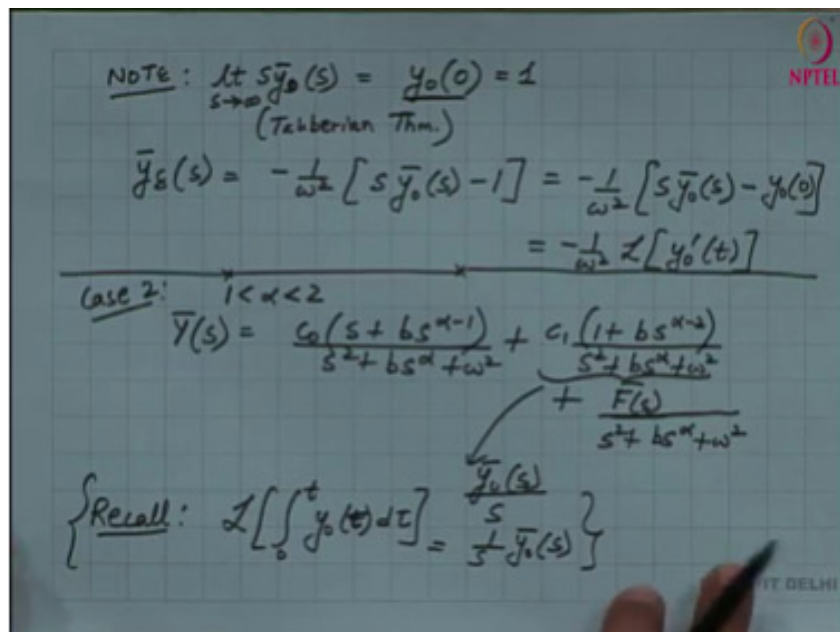 NPTEL
NOTE: lt s→∞ s ȳ₀(s) = y₀(0) = 1
(Tauberian Thm.)
ȳ_δ(s) = -1/ω² [s ȳ₀(s) - 1] = -1/ω² [s ȳ₀(s) - y₀(0)]
= -1/ω² ℒ[y₀'(t)]
Case 2: 1 < α < 2
Ȳ(s) = c₀(s + bs^(α-1))/(s² + bs^α + ω²) + c₁(1 + bs^(α-2))/(s² + bs^α + ω²)
+ F̄(s)/(s² + bs^α + ω²)
{Recall: ℒ[∫₀^t y₀(τ)dτ] = ȳ₀(s)/s
= 1/s ȳ₀(s)}
IT DELHI